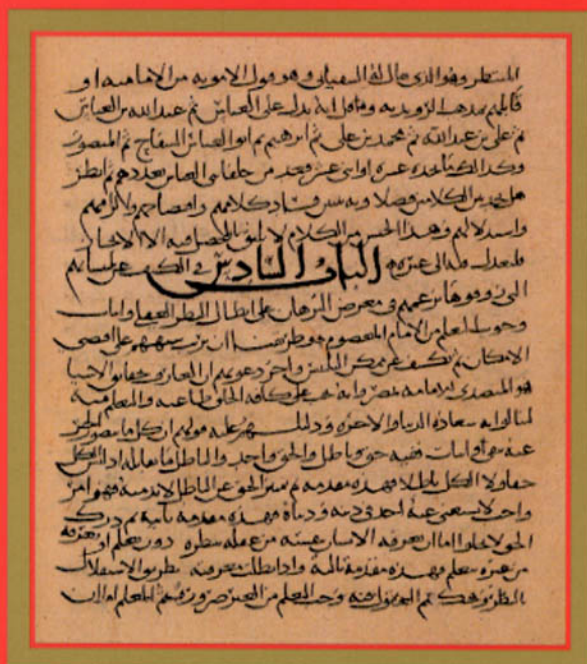 المنتظر وهو الذي يقال له السفياني وهو قول الاموية من الامامية او
قابلهم بمذهب الروندية وما قل انه يدل على العباس ثم عبد الله بن العباس
ثم علي بن عبد الله ثم محمد بن علي ثم ابرهيم ثم ابو العباس السفاح ثم المنصور
وكذا الى احد عشر او اثنى عشر فعد من خلفا بنى العباس بعددهم ثم انظر
هل تجد بين الكلامين فصلا وبه يتبين فساد كلامهم وافتضاحهم والزامهم
واستدلالهم وهذا الجنس من الكلام لا يليق بالمحصل فيه الا الايجاز
فلنعدل عنه الى غيره الباب السادس في الكشف عن تلبيساتهم
التي زوقوها بزعمهم في معرض البرهان على ابطال النظر العقلي واثبات
وجوب التعلم من الامام المعصوم وطريقنا ان نرتب شبههم على اقصى
الامكان ثم نكشف عن مكمن التلبيس واخر دعويهم ان العارف بحقايق الاشيا
هو المتصدي للامامة بمصر وانه يجب على كافة الخلق طاعته والتعلم منه
لينالوا به سعادة الدنيا والاخرة ودليلهم عليه قولهم ان كل ما يتصور الخبر
عنه بنفي او اثبات ففيه حق وباطل والحق واحد والباطل ما يقابله اذ ليس الكل
حقا ولا الكل باطلا فهذه مقدمة ثم تمييز الحق عن الباطل لا بد منه فهو امر
واجب لا يستغني عنه احد في دينه ودنياه فهذه مقدمة ثانية ثم درك
الحق لا يخلوا اما ان يعرفه الانسان بنفسه من عقله بنظره دون تعلم او يعرفه
من غيره بتعلم فهذه مقدمة ثالثة واذا بطلت معرفته بطريق الاستقلال
بالنظر وتحكيم العقول فيه وجب التعلم من الغير ضرورة ثم المعلم اما ان